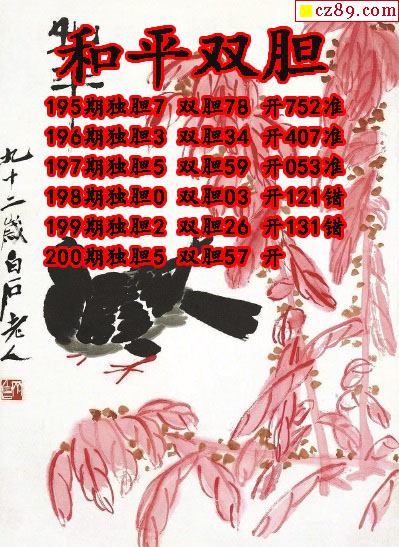 cz89.com
和平双胆
195期独胆7 双胆78 开752准
196期独胆3 双胆34 开407准
197期独胆5 双胆59 开053准
198期独胆0 双胆03 开121错
199期独胆2 双胆26 开131错
200期独胆5 双胆57 开
九十二岁白石老人